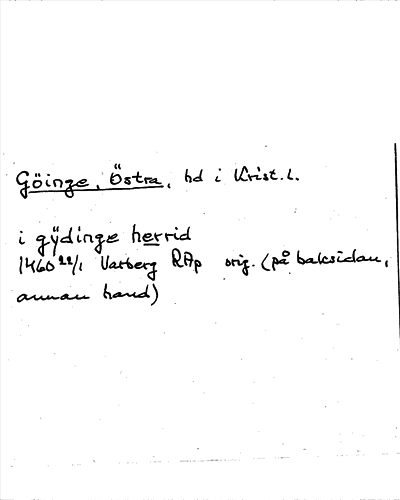 Göinge, Östra, hd i Krist.l.
i gÿdinge herrid
1460 22/1 Varberg RAp orig. (på baksidan,
annan hand)